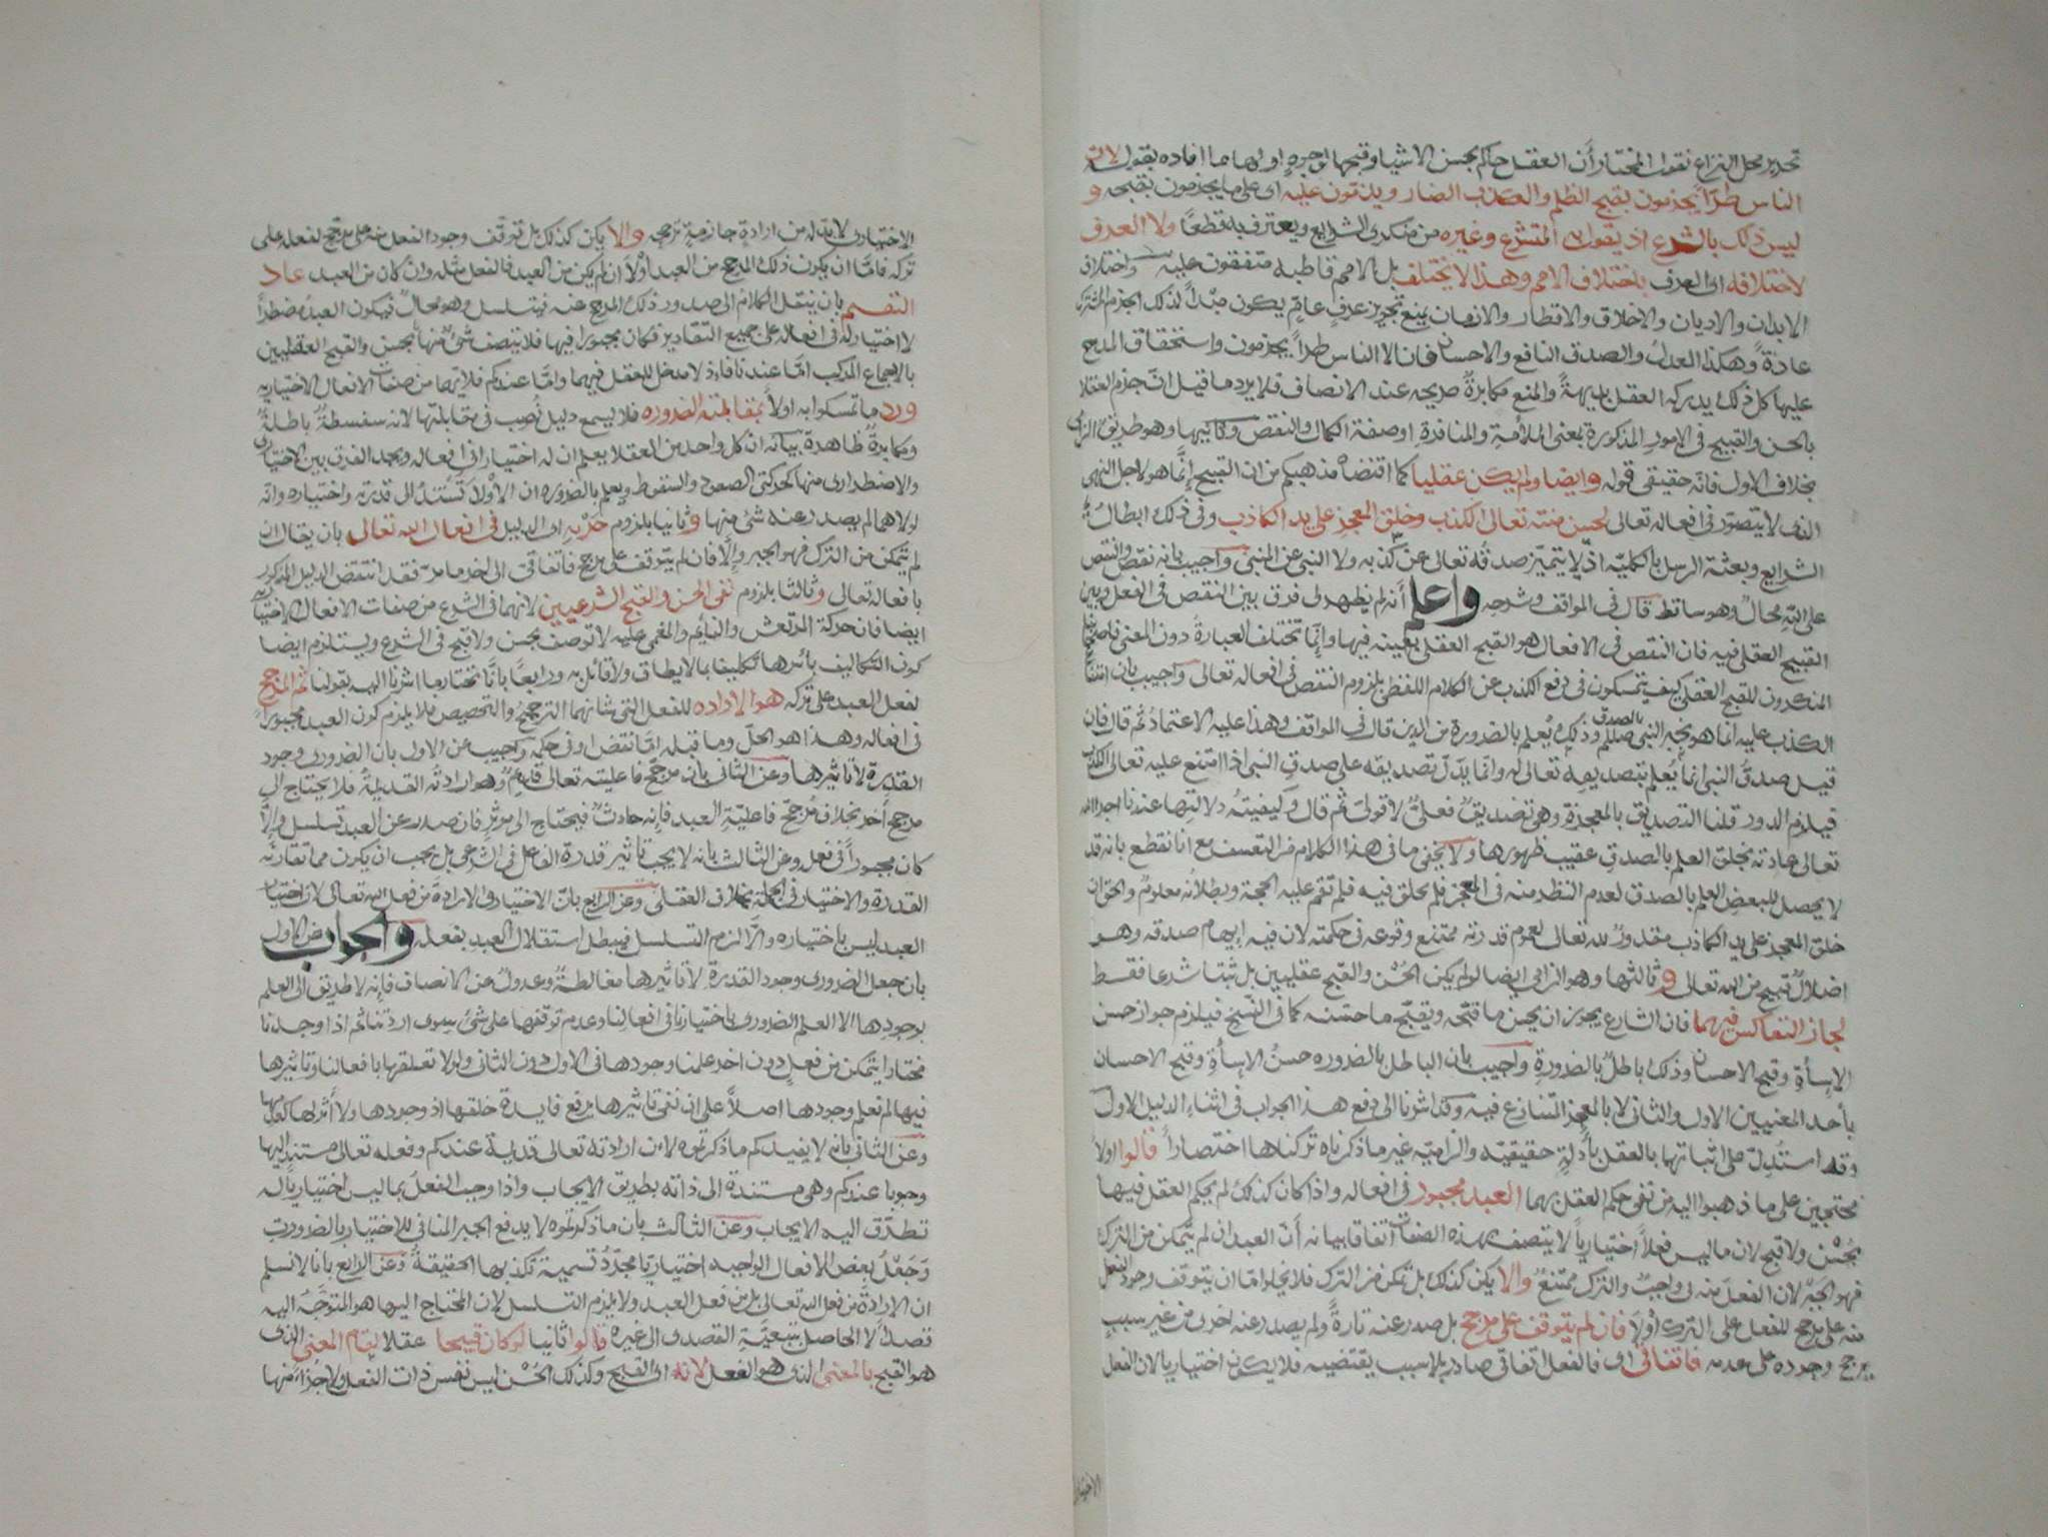 تحرير محل النزاع نقول المختار أن العقل حاكم بحسن الاشيا وقبحها لوجوه اولها ما افاده بقوله لان
الناس طرّاً يجزمون بقبح الظلم والكذب الضار ويذمّون عليه اى على ما يجزمون بقبحه و
ليس ذلك بالشرع اذ يقول به المتشرع وغيره من منكرى الشرايع ويعترف به قطعًا ولا العرف
لاختلافه اى العرف باختلاف الامم وهذا لا يختلف بل الامم قاطبه متفقون عليه واختلاف
الابدان والاديان والاخلاق والاقطار والازمان يمنع تجويز عرفٍ عامّ يكون مبدأً لذلك الجزم المشترك
عادةً وهكذا العدل والصدق النافع والاحسان فان الناس طراً يجزمون واستحقاق المدح
عليها كل ذلك يدركه العقل بديهةً والمنع مكابرةٌ صريحه عند الانصاف فلا يرد ما قيل انّ جزم العقلا
بالحسن والقبيح فى الامور المذكورة بمعنى الملأمة والمنافرة او صفة الكمال والنقص وثانيها وهو طريق الزامى
بخلاف الاول فانه حقيقى قوله وايضا ولم يكن عقليا كما اقتضاه مذهبكم من ان القبيح إنّما هو لاجل النهى
الذى لا يتصوّر فى افعاله تعالى لحسن منه تعالى الكذب وخلق المعجز على يد الكاذب وفى ذلك ابطال
الشرايع وبعثة الرسل بالكليّه اذ لا يتميّز صدقُه تعالى عن كذبه ولا النبى عن المتنبى واجيب بانه نقص والنقص
على اللّه محالٌ وهو ساقط قال فى المواقف وشرحه واعلم أنه لم يظهر لى فرق بين النقص فى الفعل وبين
القبيح العقلى فيه فان النقص فى الافعال هو القبح العقلى بعينه فيها وإنّما تختلف العبارة دون المعنى فاصحابنا
المنكرون للقبح العقلى كيف يتمسكون فى دفع الكذب عن الكلام اللفظى بلزوم النقص فى افعاله تعالى واجيب بان انتفا
الكذب عليه انما هو بخبر النبى صللم بالصدق وذلك يُعلم بالضرورة من الدين قال فى المواقف وهذا عليه الاعتمادُ ثم قال فان
قيل صدقُ النبى انما يُعلم بتصديقه تعالى له وانما يدلّ تصديقه على صدقِ النبى اذا امتنع عليه تعالى الكذب
فيلزم الدور قلنا التصديق بالمعجزة وهى تصديقٌ فعلىٌّ لا قولىّ ثم قال وكيفيتهُ دلالتها عندنا اجرا الله
تعالى عادته بخلق العلم بالصدق عقيب ظهورها ولا يخفى ما فى هذا الكلام من التعسف مع انا نقطع بانه قد
لا يحصل للبعض العلم بالصدق لعدم النظر منه فى المعجز فلم يخلق فيه فلم تقم عليه الحجة وبطلانُه معلومٌ والحق ان
خلق المعجز على يد الكاذب مقدورٌ للّه تعالى لعموم قدرته ممتنع وقوعه فى حكمته لان فيه إيهام صدقه وهو
اضلالٌ قبيح من الله تعالى وثالثها وهو الزامى ايضا لو لم يكن الحُسْن والقبح عقليين بل ثبتا شرعا فقط
لجاز التعاكس فيهما فان الشارع يجوز ان يحسّن ما قبّحه ويقبّح ما حسّنه كما فى النّسخ فيلزم جواز حسن
الإسأة وقبح الاحسان وذلك باطلٌ بالضرورة واجيب بان الباطل بالضروره حسنُ الإسأةِ وقبح الاحسان
بأحد المعنيين الاول والثانى لا بالمعنى المتنازع فيه وقد اشرنا الى دفع هذا الجواب فى اثناء الدليل الاول
وقد استُدِلّ على اثباتها بالعقل بأدلةٍ حقيقيّه والزاميّه غير ما ذكرناه تركناها اختصاراً قالوا اولا
محتجين على ما ذهبوا اليه من نفى حكم العقل بهما العبد مجبور فى افعاله واذا كان كذلك لم يحكم العقل فيها
بحُسْن ولا قبح لان ما ليس فعلاً اختيارياً لا يتصف بهذه الصفات اتفاقا بيانه أنّ العبد ان لم يتمكن من الترك
فهو الجبر لان الفعل منه ح واجبٌ والترك ممتنعٌ والا يكن كذلك بل تمكن من الترك فلا يخلو امّا ان يتوقف وجود الفعل
منه على مرجح للفعل على الترك اوْلا فان لم يتوقف على مرجح بل صدر عنه تارةً ولم يصدر عنه اخرى من غير سببٍ
يرجح وجوده على عدمه فاتفاقى اى فالفعل اتفاقى صادر بلا سبب يقتضيه فلا يكون اختياريا لان الفعل
الاختيار
الاختيارى لا بدّ له من ارادةٍ جازمةٍ ترجحه والا يكن كذلك بل توقف وجود الفعل منه على مرجح لفعله على
تركه فامّا ان يكون ذلك المرجح من العبد أوْلا ان لم يكن من العبد فالفعل مثله وان كان من العبد عاد
التقسيم بان ينقل الكلام الى صدور ذلك المرجح عنه فيتسلسل وهو محالٌ فيكون العبد مضطراً
لا اختيار له فى افعاله على جميع التقادير فكان مجبورا فيها فلا يتصف شئٌ منها بحسن والقبح العقليين
بالاجماع المركب امّا عندنا فاذ لا مدخل للعقل فيهما وامّا عندكم فلانهما من صفات الافعال الاختياريه
ورد ما تمسكوا به اولاً بمقابلته الضروره فلا يسمع دليل نُصب فى مقابلتها لانه سفسطةٌ باطلةٌ
ومكابرةٌ ظاهرة بيانه ان كل واحد من العقلا يعلم ان له اختيارا فى افعاله ويجد الفرق بين الاختيارى
والاضطرارى منها كحركتى الصعود والسقوط ويعلم بالضروره ان الأولى تَستَندُ الى قدرته واختياره وانّه
لولاهما لم يصدر عنه شئ منها وثانيا بلزوم جَرْيه اى الدليل فى افعال الله تعالى بان يقال ان
لم يتمكن من الترك فهو الجبر وإلا فان لم يتوقف على مرجح فاتفاقىّ الى اخر ما مرّ فقد انتقض الدليل المذكور
بافعاله تعالى وثالثا بلزوم نفى الحسن والقبح الشرعيين لانهما فى الشرع من صفات الافعال الاختياريه
ايضا فان حركة المرتعش والنايم والمغمى عليه لا توصف بحسن ولا قبح فى الشرع ويستلزم ايضا
كون التكاليف بأسرها تكليفا بما لا يطاق ولا قائل به ورابعًا بانّا نختار ما اشرنا اليه بقولنا ثم المرجح
لفعل العبد على تركه هو الاراده للفعل التى شانها الترجيحُ والتخصيص فلا يلزم كون العبد مجبوراً
فى افعاله وهذا هو الحلّ وما قبله امّا نقض او فى حكمه واجيب عن الاول بان الضرورى وجود
القدرة لا تاثيرها وعن الثانى بان مرجّح فاعليته تعالى قديمٌ وهو ارادته القديمةُ فلا يحتاج الى
مرجح أخر بخلاف مُرجّح فاعليّةِ العبد فإنه حادثٌ فيحتاج الى موثرٍ فان صدر عن العبد تسلسل وإلّا
كان مجبوراً فى فعله وعن الثالث بانه لا يجب تاثير قدرة الفاعل فى الشرعى بل يجب ان يكون مما تقارنه
القدرة والاختيار فى الجملة بخلاف العقلى وعن الرابع بانّ الاختيار والارادة من فعل الله تعالى لان اختيار
العبد ليس باختياره والّا لزم التسلسل فيبطل استقلال العبد بفعله والجواب عن الاول
بان جعل الضرورى وجود القدرة لا تاثيرها مغالطةٌ وعدولٌ عن الانصاف فإنه لا طريق الى العلم
بوجودها الا العلم الضرورى باختيارنا فى افعالنا وعدم توقفها على شئ سوى ارادتنا ثم اذا وجدنا
مختارا يتمكن من فعلٍ دون اخر علمنا وجودها فى الاول دون الثانى ولولا تعلقها بافعالنا وتاثيرها
فيها لم نعلم وجودها اصلاً على ان نفى تاثيرها يرفع فايدة خلقها اذ وجودها ولا أثر لها كعدمها
وعن الثانى بانه لا يفيدكم ما ذكرتموه لان ارادته تعالى قديمة عندكم وفعله تعالى مستند اليها
وجوبا عندكم وهى مستندة الى ذاته بطريق الايجاب واذا وجب الفعلُ بما ليس اختيارياً له
تطرّق اليه الايجاب وعن الثالث بأن ما ذكرتموه لا يدفع الجبر المنافى للاختيار بالضرورة
وَجَعْلُ بعض الافعال الواجبه اختياريّا مجرّدُ تسمية تكذبها الحقيقةُ وعن الرابع بانا لا نسلم
ان الارادة من فعل الله تعالى بل من فعل العبد ولا يلزم التسلسل لان المحتاج اليها هو المتوَجَّهُ اليه
قصدًا لا الحاصل بتبعيّة القصد الى غيره قالوا ثانيا لو كان قبيحا عقلا لقام المعنى الذى
هو القبح بالمعنى الذى هو الفعل لانه اى القبح وكذلك الحُسْن ليس نفس ذات الفعل ولا جُزْأً منها